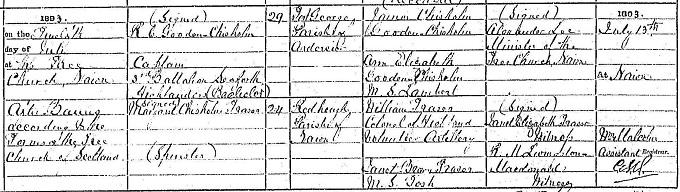 1893.
on the Twelfth
day of
July
at the Free
Church, Nairn
After Banns
according to the
Forms of the Free
Church of Scotland
(Signed)
R. E. Goodon-Chisholm
Captain
3rd Battalion Seaforth
Highlanders (Bachelor)
(Signed)
Margaret Chisholm Fraser
(Spinster)
29
24
Parish of
Ardersier
Parish of
Nairn
James Chisholm
Goodon-Chisholm
Ann Elizabeth
Goodon-Chisholm
M. S. Lambert
William Fraser
Colonel of Highland
Volunteer Artillery
Janet Fraser
M. S. Tosh
(Signed)
Alexander Lee
Minister of the
Free Church, Nairn
(Signed)
Janet Elizabeth Fraser
Witness
R. M. Livingstone
Macdonald
Witness
1893.
July 13th
at Nairn
Wm Malcolm
Assistant Registrar.